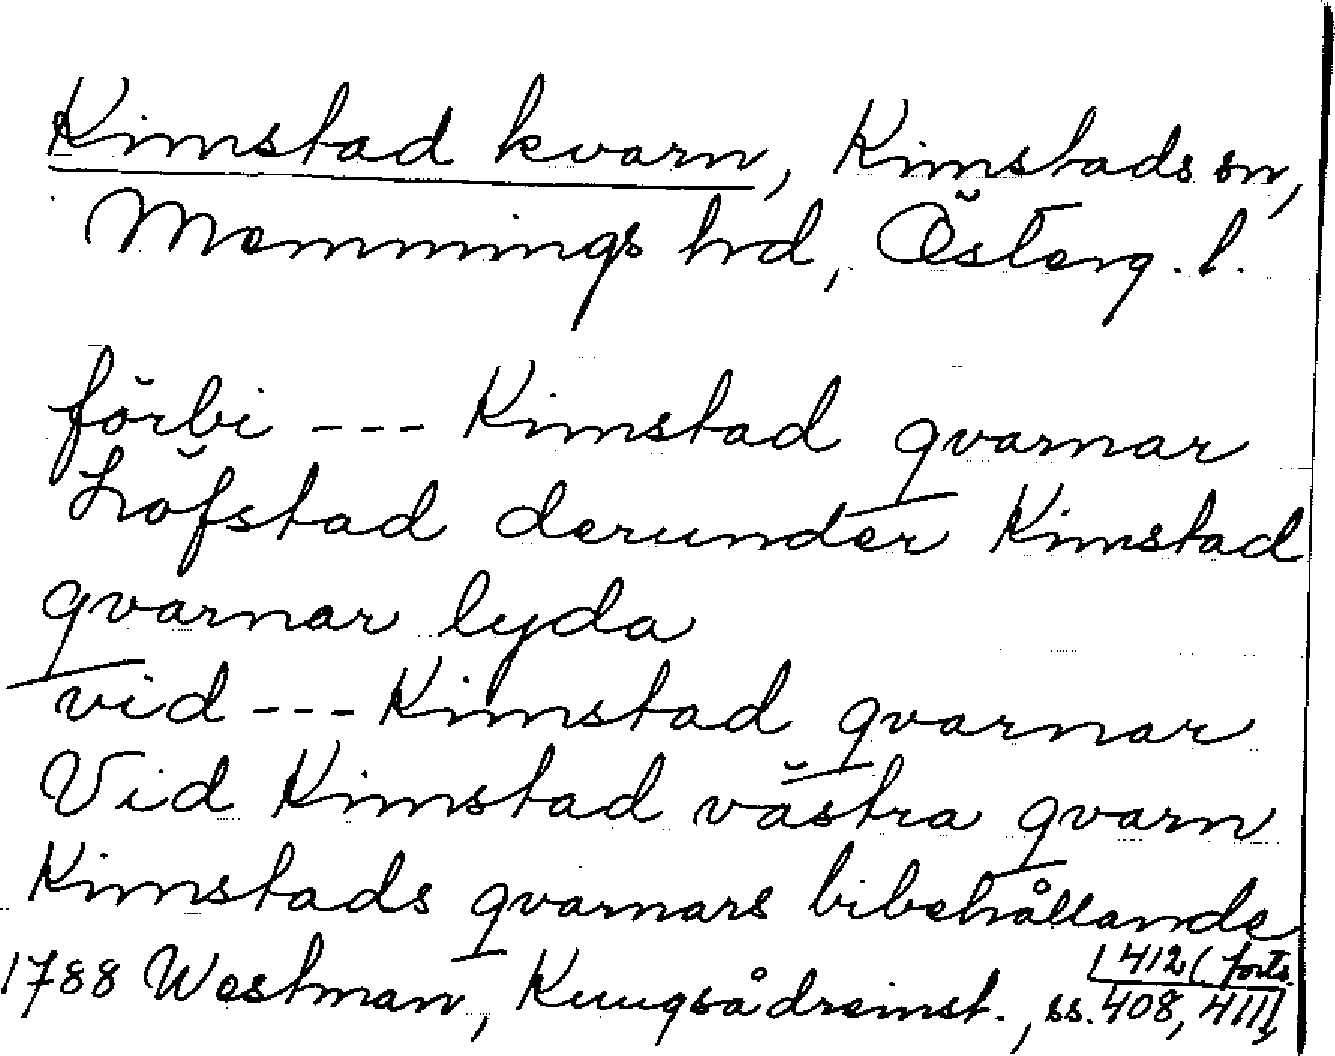 Kimstad kvarn, Kimstads sn,
Memmings hrd, Österg. l.
förbi --- Kimstad qvarnar
Löfstad derunder Kimstad
qvarnar lyda
vid --- Kimstad qvarnar
Vid Kimstad västra qvarn
Kimstads qvarnars bibehållande
412 (forts
1788 Westman, Kungsådreinst., ss. 408, 411,